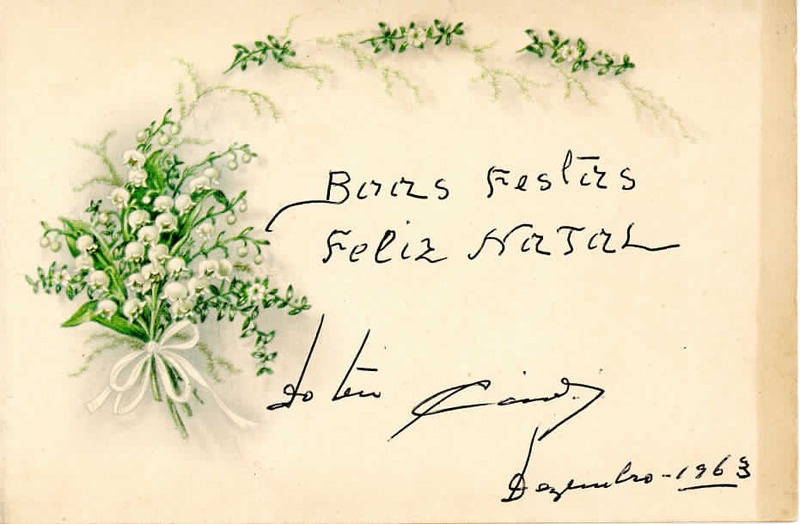 Boas Festas
Feliz Natal
do teu
Dezembro - 1963